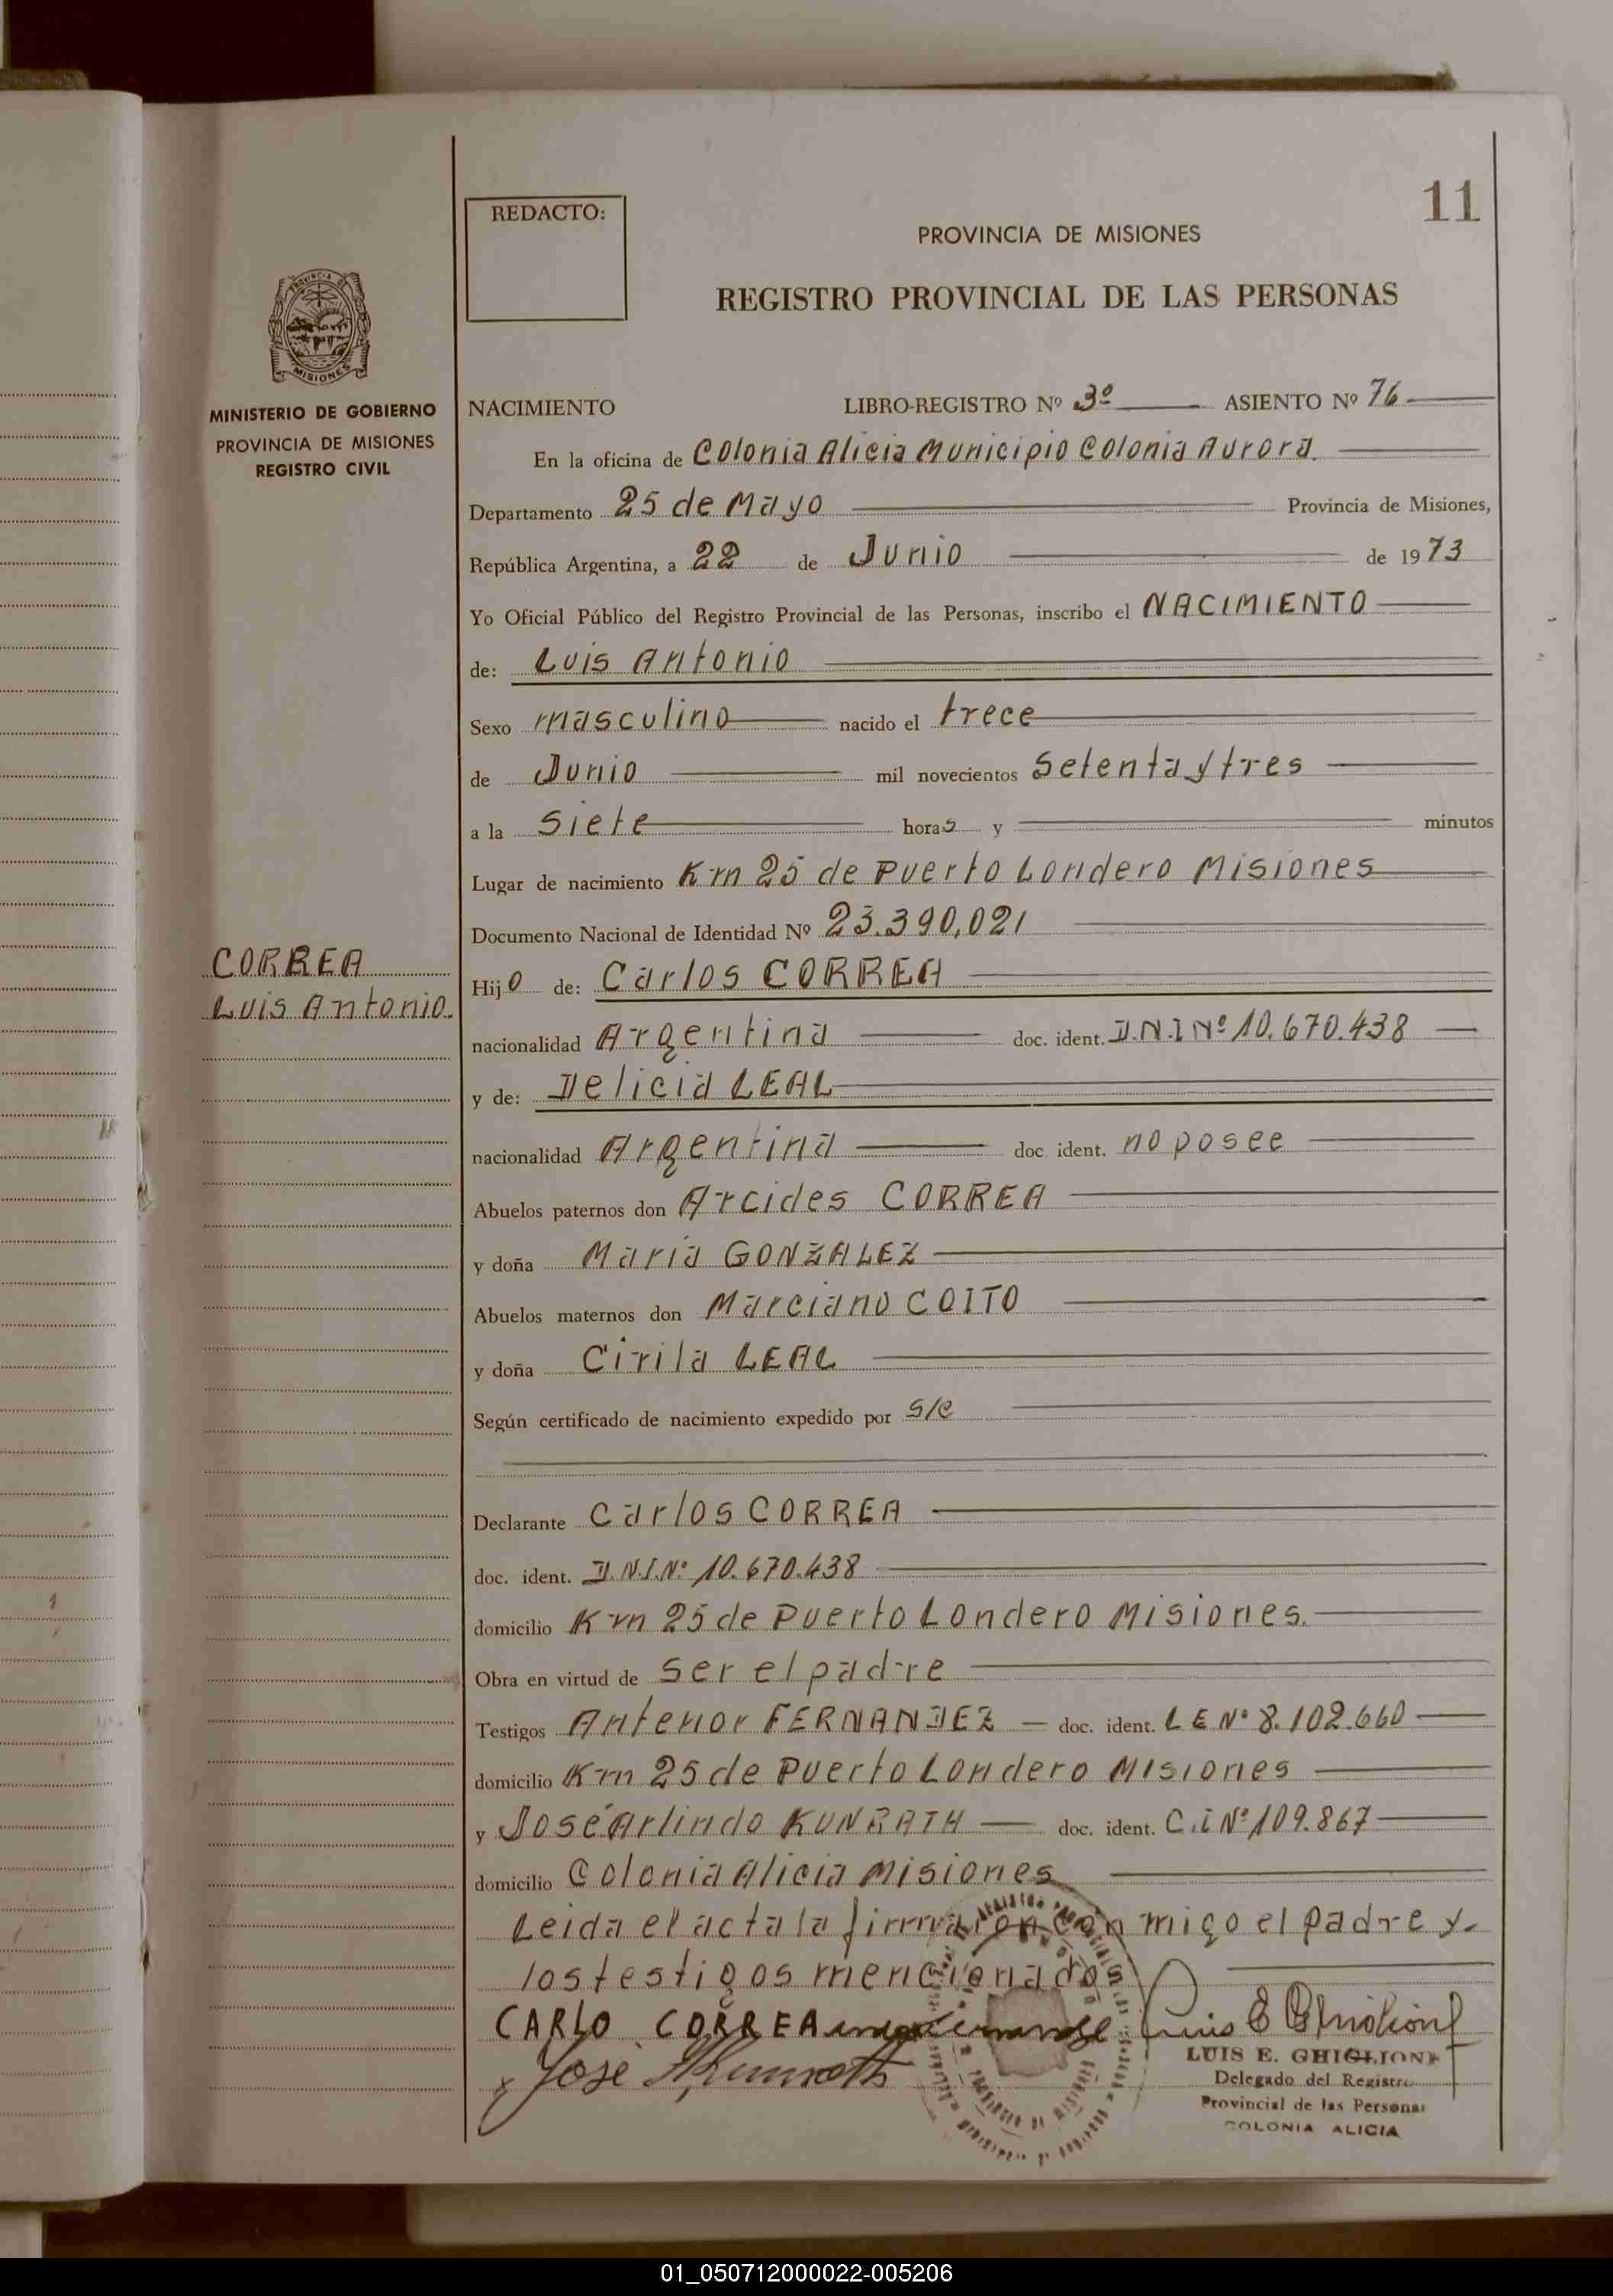 11
REDACTO:
PROVINCIA DE MISIONES
REGISTRO PROVINCIAL DE LAS PERSONAS
PROVINCIA DE
MISIONES
MINISTERIO DE GOBIERNO
PROVINCIA DE MISIONES
REGISTRO CIVIL
NACIMIENTO LIBRO-REGISTRO Nº 3º ASIENTO Nº 76
En la oficina de Colonia Alicia Municipio Colonia Aurora.
Departamento 25 de Mayo Provincia de Misiones,
República Argentina, a 22 de Junio de 1973
Yo Oficial Público del Registro Provincial de las Personas, inscribo el NACIMIENTO
de: Luis Antonio
Sexo masculino nacido el trece
de Junio mil novecientos Setenta y tres
a la Siete horas y minutos
Lugar de nacimiento Km 25 de Puerto Londero Misiones
Documento Nacional de Identidad Nº 23.390,021
CORREA
Luis Antonio.
Hijo de: Carlos CORREA
nacionalidad Argentina doc. ident. D.N.I Nº 10.670.438
y de: Delicia LEAL
nacionalidad Argentina doc ident. no posee
Abuelos paternos don Arcides CORREA
y doña Maria GONZALEZ
Abuelos maternos don Marciano COITO
y doña Cirila LEAL
Según certificado de nacimiento expedido por S/C
Declarante Carlos CORREA
doc. ident. D.N.I.Nº 10.670.438
domicilio Km 25 de Puerto Londero Misiones.
Obra en virtud de ser el padre
Testigos Antenor FERNANDEZ doc. ident. L E Nº 8.102.660
domicilio Km 25 de Puerto Londero Misiones
y José Arlindo KUNRATH doc. ident. C.i Nº 109.867
domicilio Colonia Alicia Misiones
Leida el acta la firmaron con migo el padre y
los testigos mencionados
CARLO CORREA
José
LUIS E. GHIGLIONE
Delegado del Registro
Provincial de las Personas
COLONIA ALICIA
01_050712000022-005206